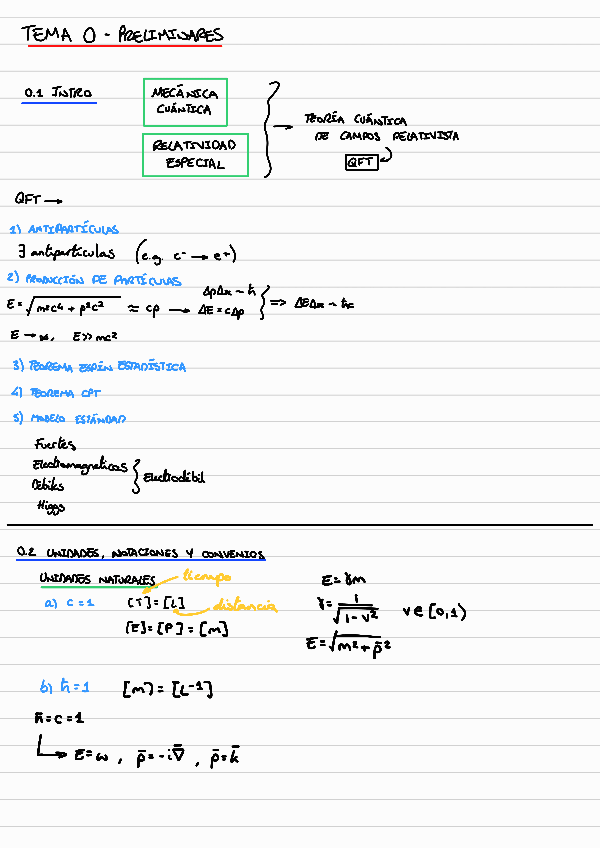 TEMA 0 - PRELIMINARES
0.1 INTRO
MECÁNICA
CUÁNTICA
RELATIVIDAD
ESPECIAL
TEORÍA CUÁNTICA
DE CAMPOS RELATIVISTA
QFT
QFT →
1) ANTIPARTÍCULAS
∃ antipartículas (e.g. e⁻ → e⁺)
2) PRODUCCIÓN DE PARTÍCULAS
E = √(m²c⁴ + p²c²) ≈ cp → ΔpΔx ~ ħ
ΔE = cΔp
⇒ ΔEΔx ~ ħc
E → ∞, E >> mc²
3) TEOREMA ESPÍN ESTADÍSTICA
4) TEOREMA CPT
5) MODELO ESTÁNDAR
Fuertes
Electromagneticas
Débiles
Electrodébil
Higgs
0.2 UNIDADES, NOTACIONES Y CONVENIOS
UNIDADES NATURALES
tiempo
a) c = 1 [T] = [L]
distancia
[E] = [P] = [m]
E = γm
γ = 1/√(1 - v²) v ∈ [0,1)
E = √(m² + p̄²)
b) ħ = 1 [m] = [L⁻¹]
ħ = c = 1
→ E = ω, p̄ = -i∇̄, p̄ = k̄